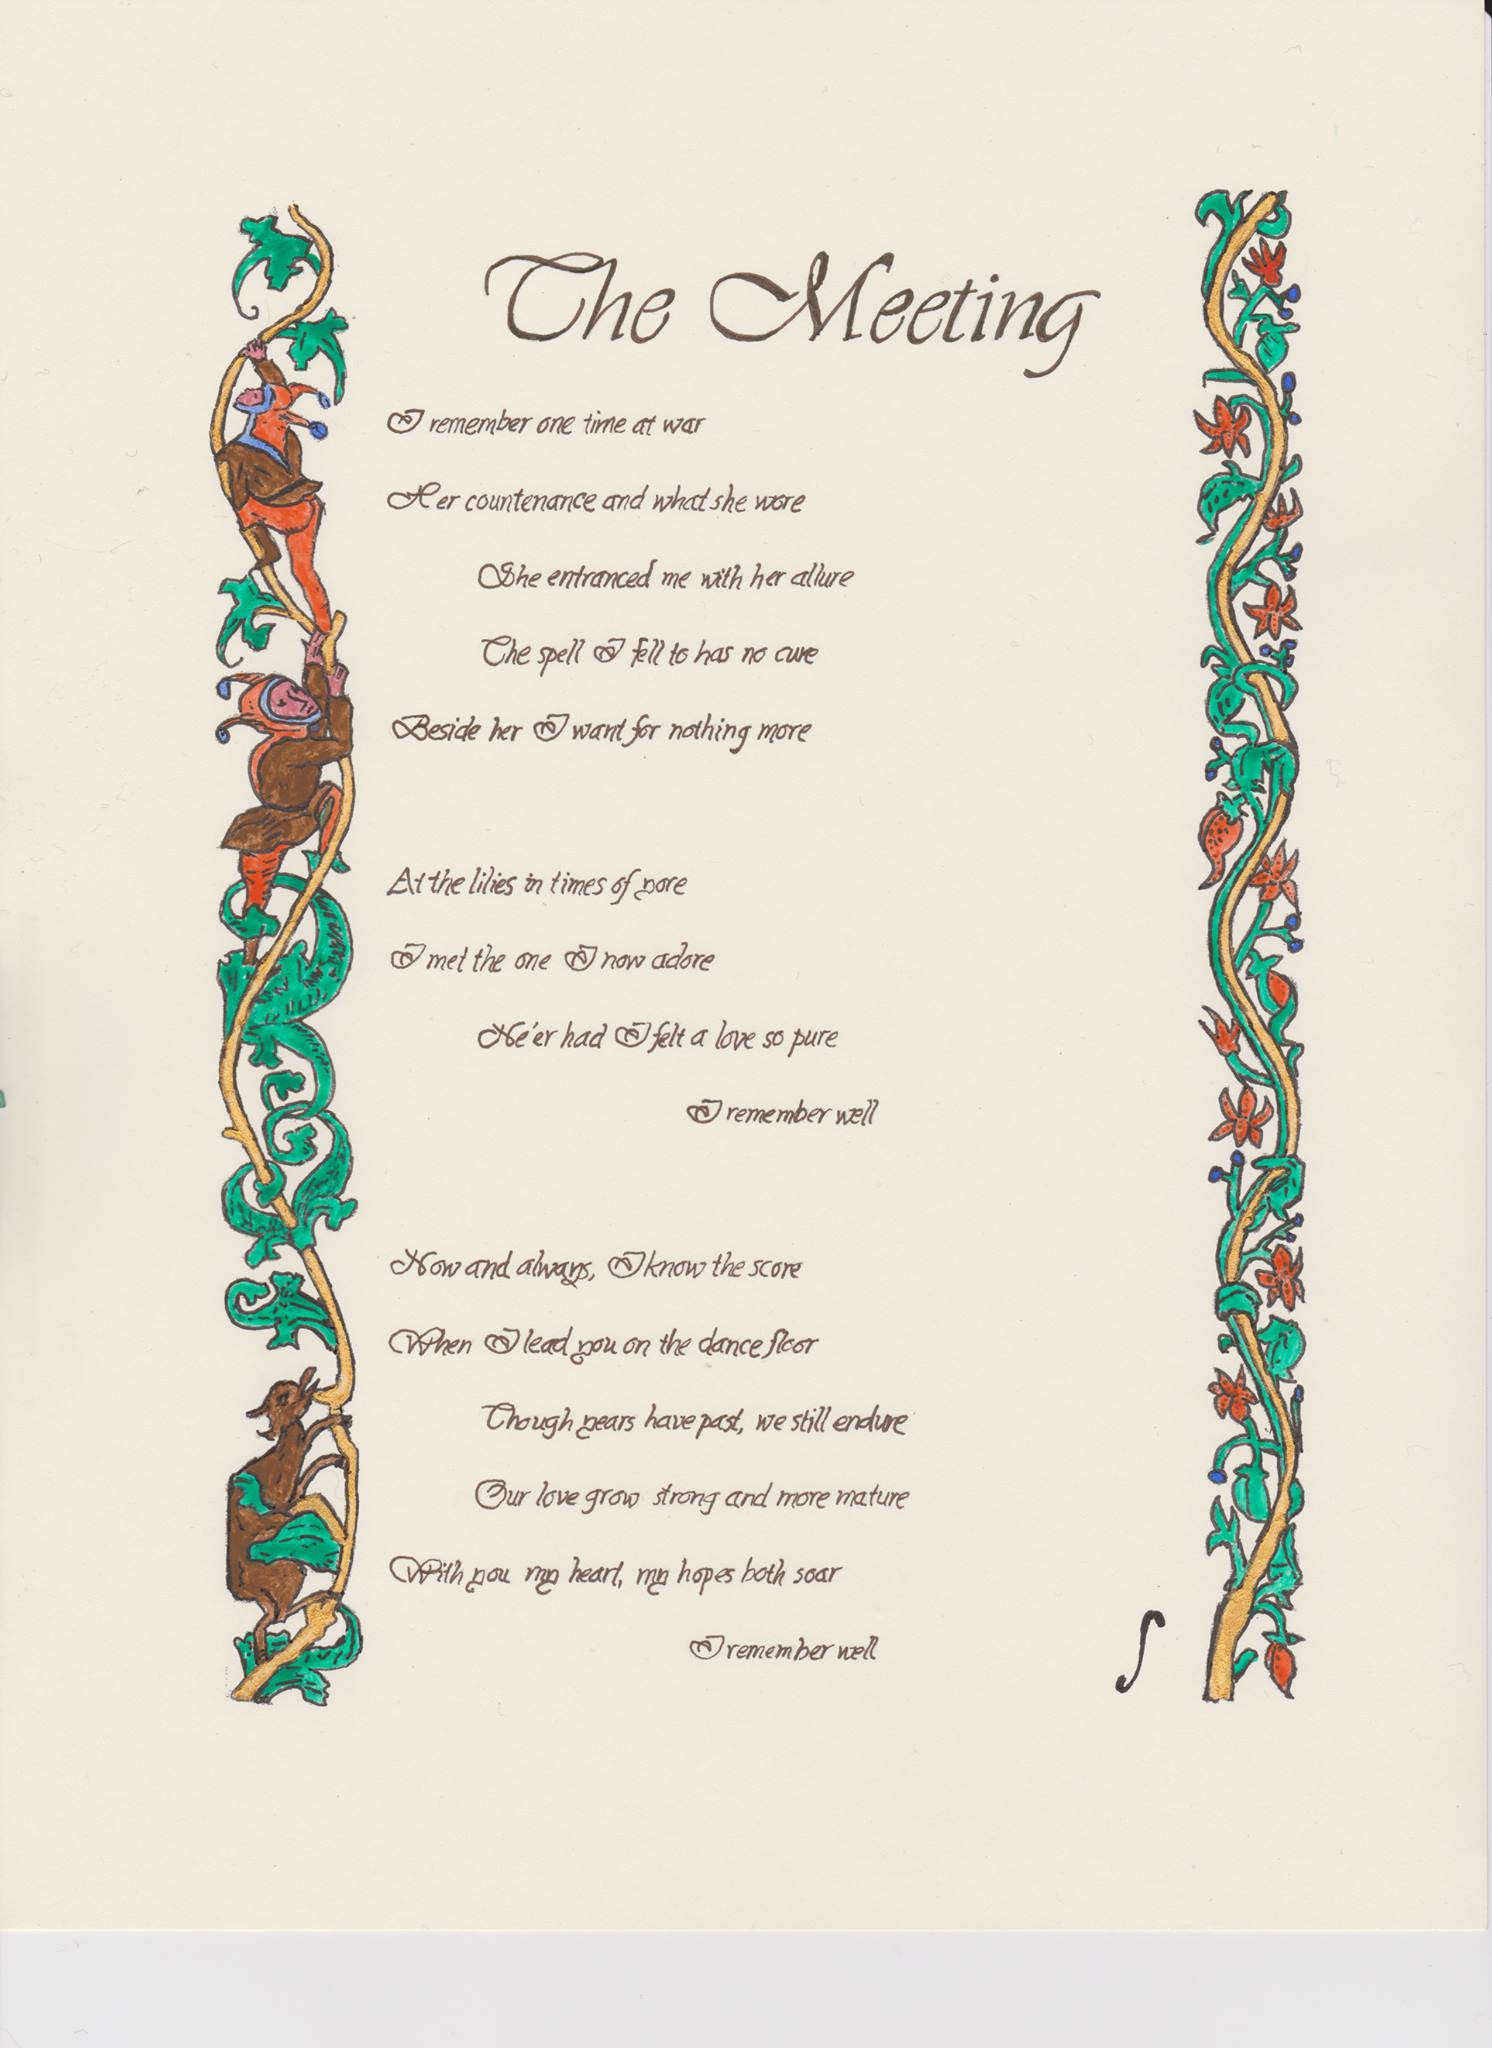 The Meeting
I remember one time at war
Her countenance and what she wore
She entranced me with her allure
The spell I fell to has no cure
Beside her I want for nothing more
At the lilies in times of yore
I met the one I now adore
Ne'er had I felt a love so pure
I remember well
Now and always, I know the score
When I lead you on the dance floor
Though years have past, we still endure
Our love grow strong and more mature
With you my heart, my hopes both soar
I remember well